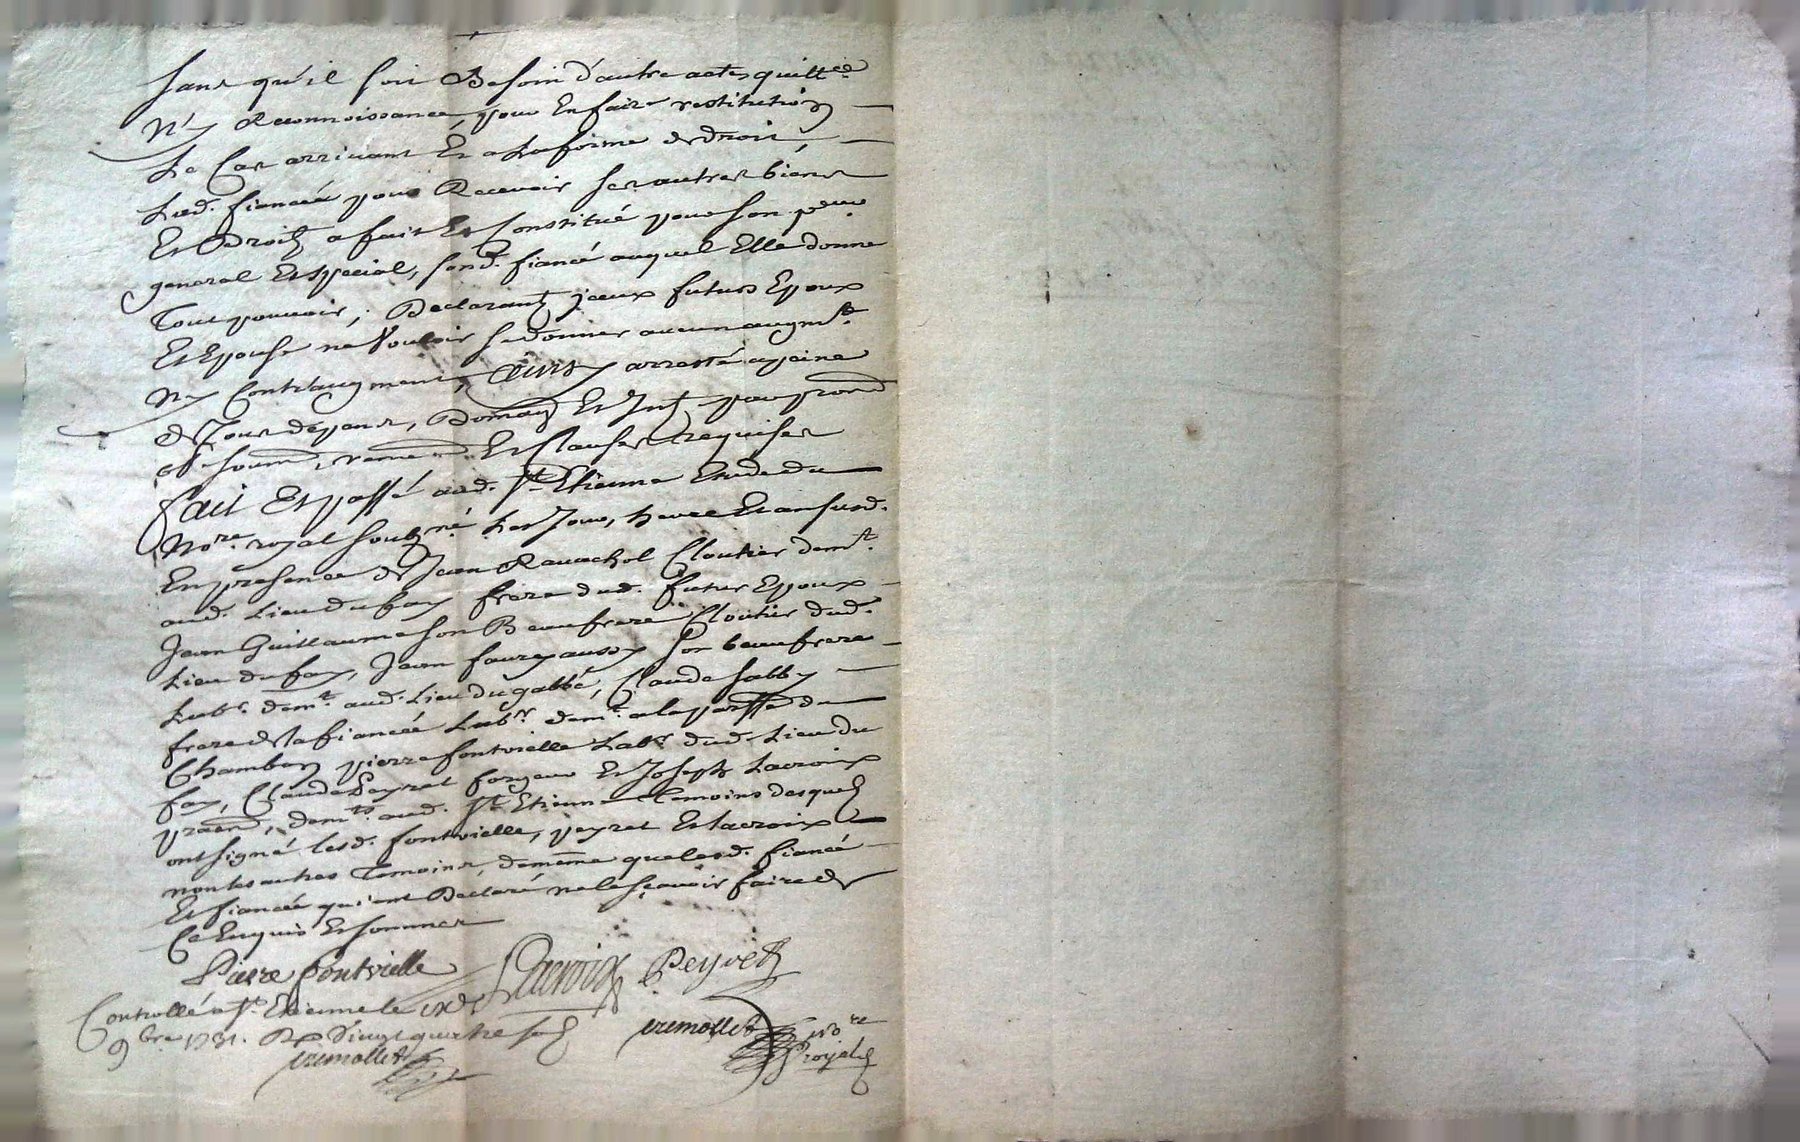 sans qu'il soit Besoin d'autre actes quittce
N'y Reconnoissance, pour En faire restitution
Le Cas arrivant Et a la forme de droit,
Lad. fiancéé pour Recevoir ses autres biens
Et Droits a fait Et Constitué pour son pcur
general Et special, sond. fiancé auquel Elle donne
Tout pouvoir, Declarants iceux futurs Epoux
Et Epouse ne Vouloir se donner aucun augmt
N'y Contr'augment, Ainsy arresté a peine
de Tous depens, Domag Et Int par prom
ob soum, renon Et Clauses requises
fait Et passé aud. St Etienne Etude du
Nore royal soubsné Les Jour, heure Et an susd.
En presence de Jean Ravachol Cloutier demt
aud. Lieu du fay frere dud. futur Epoux
Jean Guillaume son Beaufrere Cloutier dud.
Lieu du fay, Jean faure aussy son beaufrere
Labr demt aud. Lieu du gabbé, Claude
frere de la fiancéé Labr demt a la parsse du
Chambon pierre fontvielle Labr dud. Lieu du
fay, Claude Peyret forgeur Et Joseph Lacroix
pratn, demts aud. St Etienne Temoins desquels
ont signé lesd. fontvielle, peyret Et lacroix
non les autres Temoins, de même que lesd. fiancé
Et fiancéé qui ont Declaré ne le sçavoir faire de
Ce Enquis Et sommes
Pierre fontvielle Lacroix Peyret
Controllé a St Etienne le
9bre 1731. R Vingt quatre sols
vremollet Nore
royal
vremollet